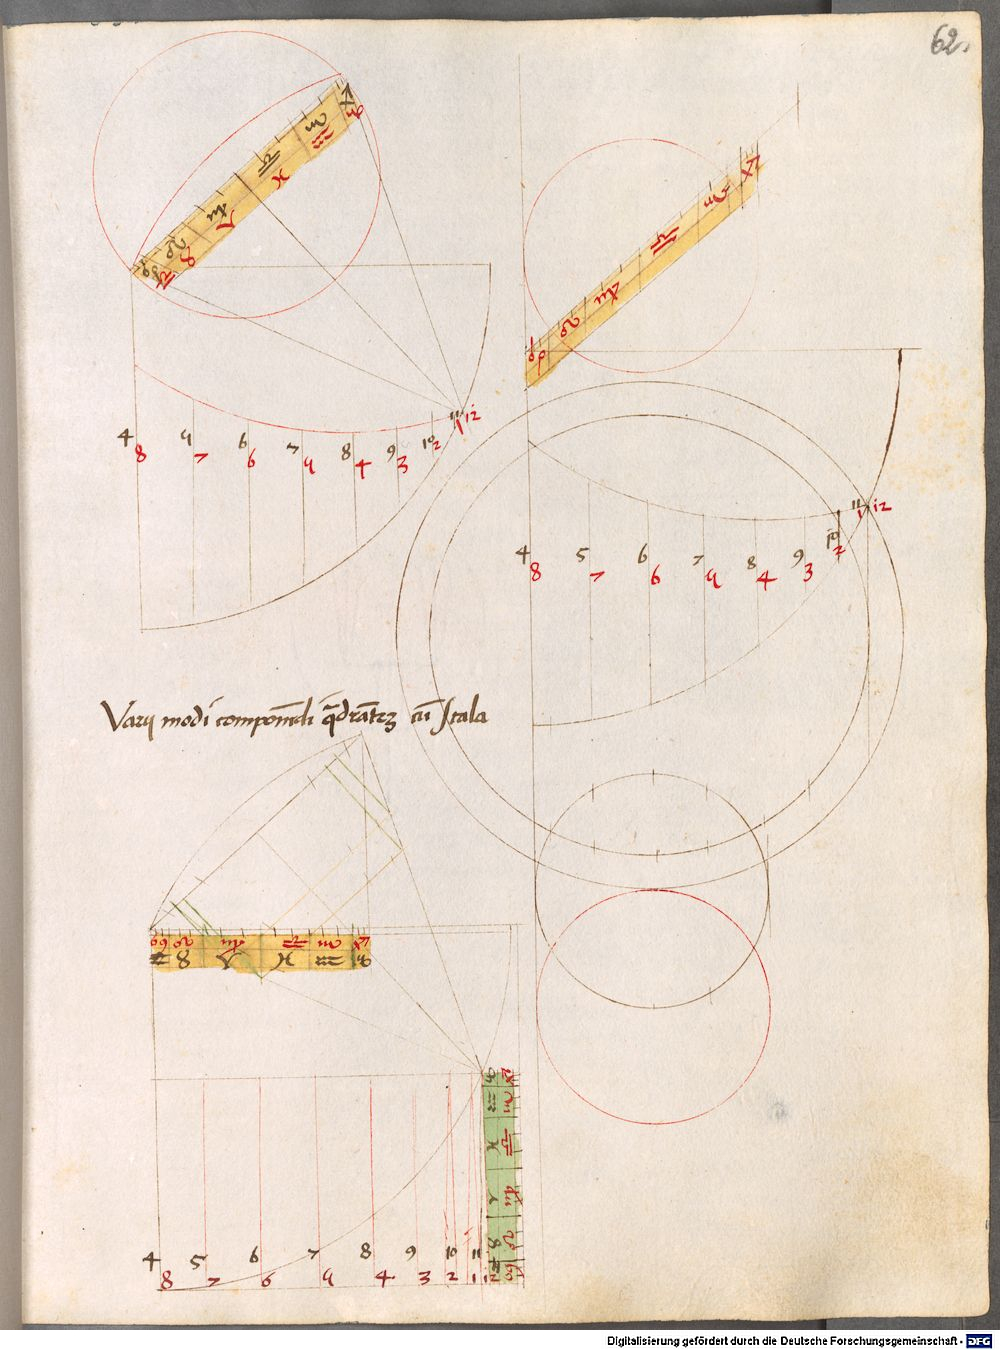 62.
♑ ♐
♏ ♒
♎ ♓
♍ ♈
♌ ♉
♋ ♊
♐
♏
♎
♍
♌
♋
4 5 6 7 8 9 10 11 12
8 7 6 5 4 3 2 1
4 5 6 7 8 9 10 11 12
8 7 6 5 4 3 2 1
Varij modi componendi q̄drātez cū Scala
♋ ♌ ♍ ♎ ♏ ♐
♊ ♉ ♈ ♓ ♒ ♑
♑ ♐
♒ ♏
♓ ♎
♈ ♍
♉ ♌
♊ ♋
4 5 6 7 8 9 10 11 12
8 7 6 5 4 3 2 1
Digitalisierung gefördert durch die Deutsche Forschungsgemeinschaft - DFG